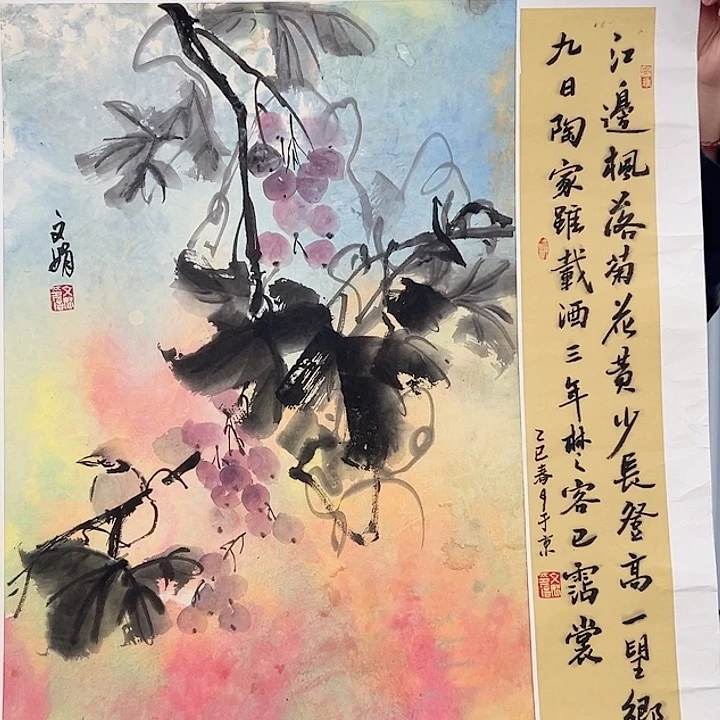 江邊楓落菊花黃少長登高一望鄉
九日陶家雖載酒三年楚客已霑裳
乙巳春月于京
文娟